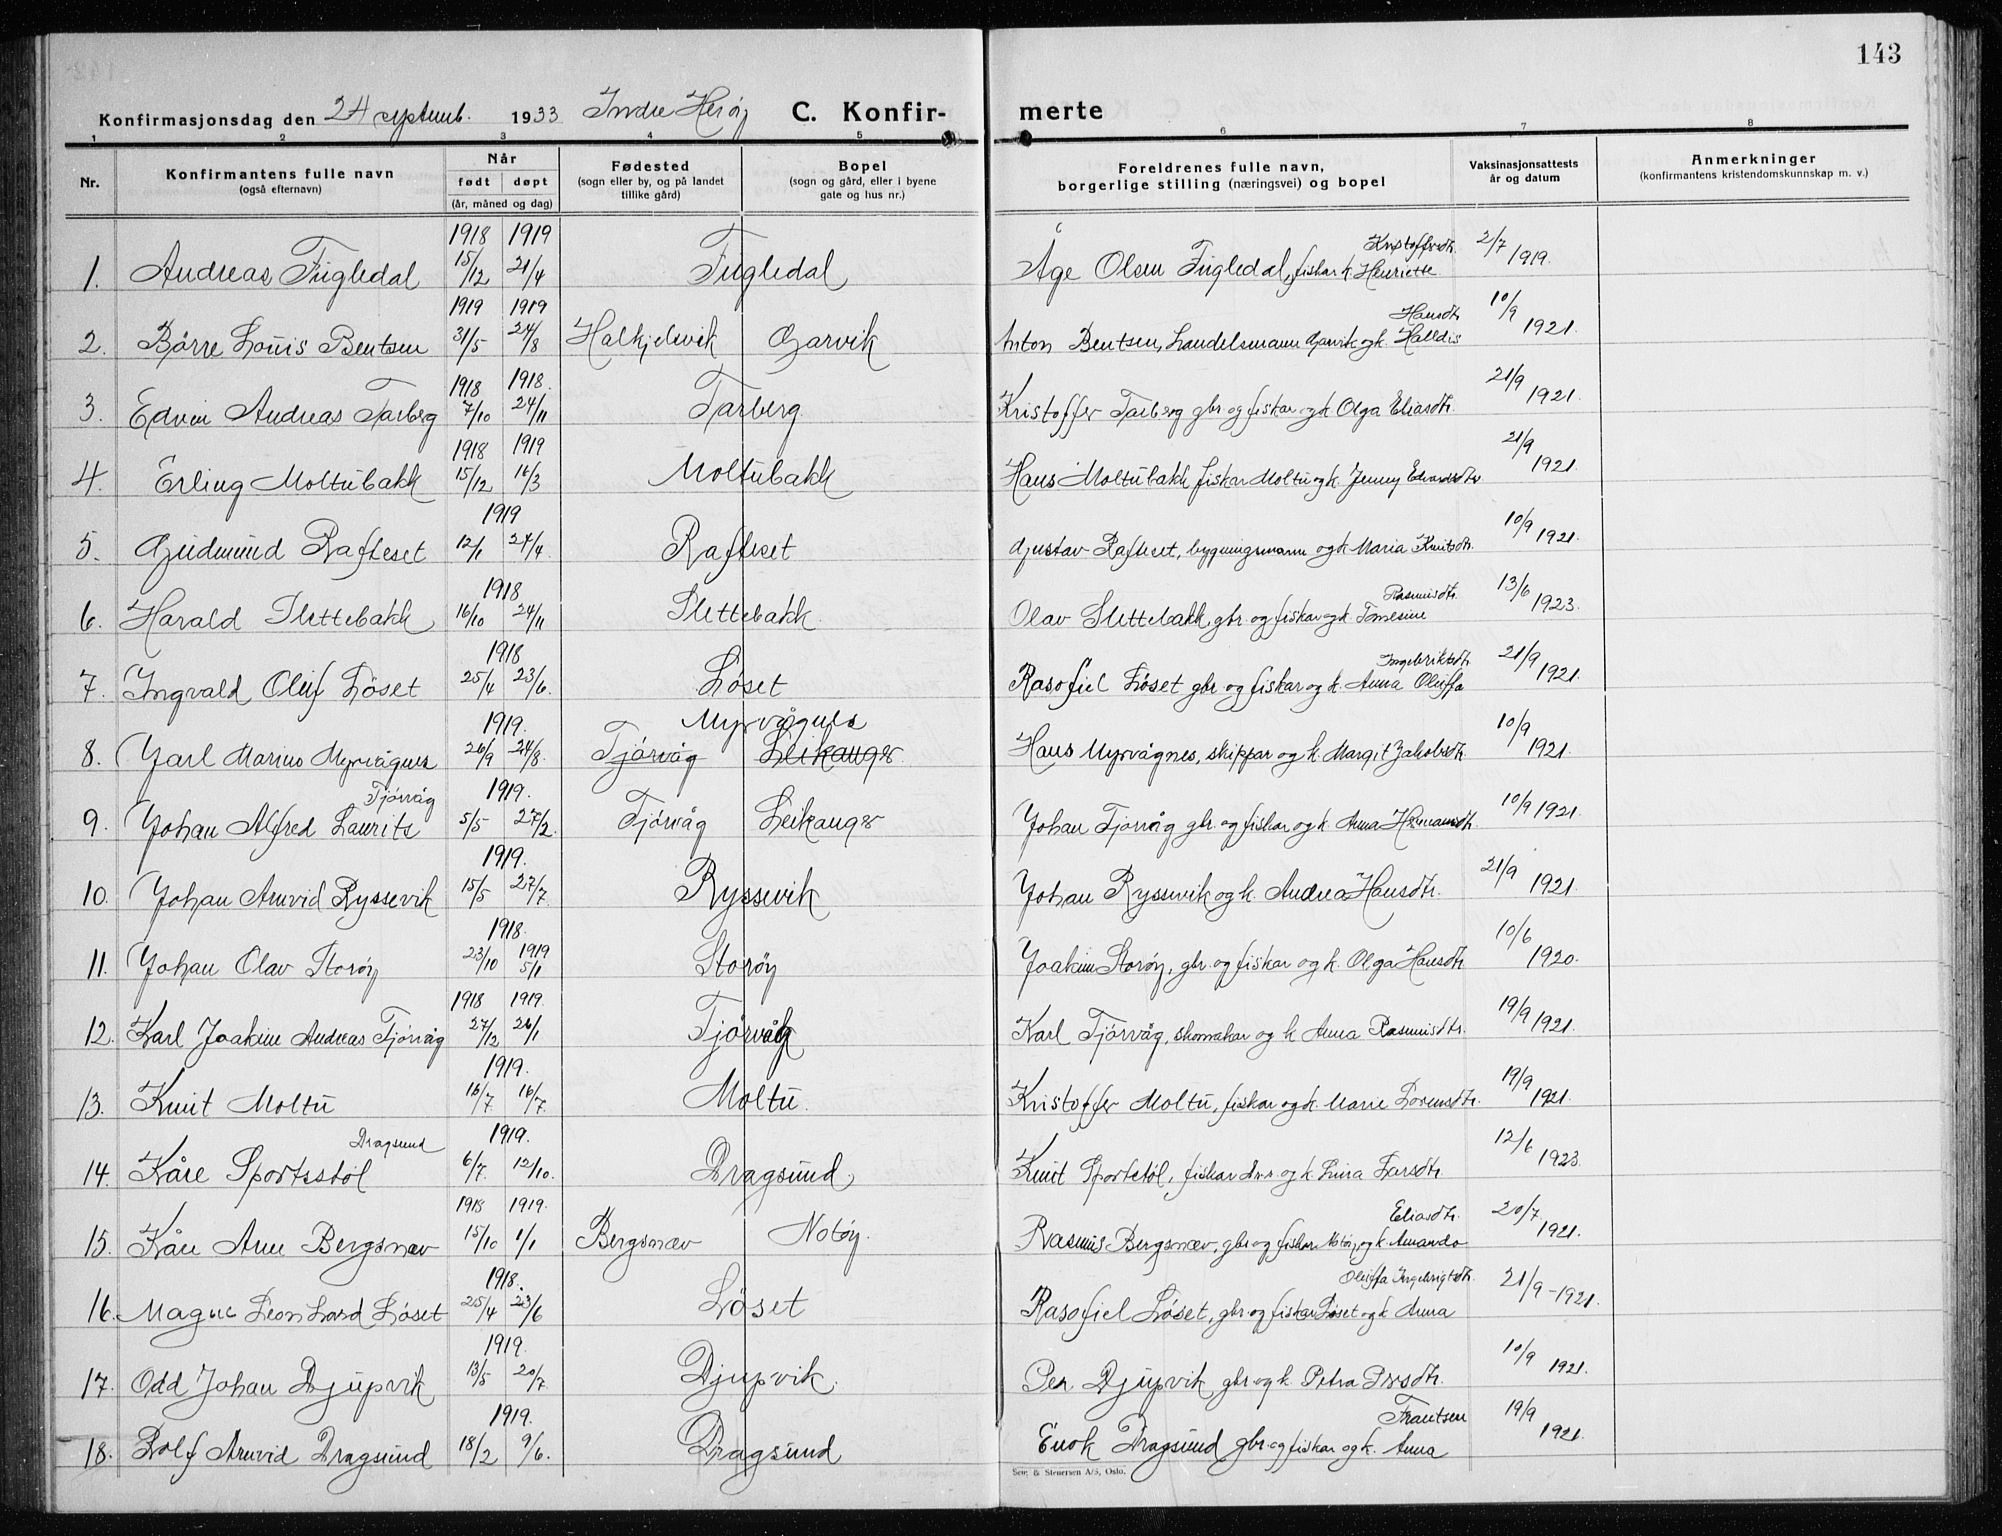 143
Konfirmasjonsdag den 24 septemb. 1933 Indre Herøy C. Konfir-merte
1 2 3 4 5 6 7 8
Nr. Konfirmantens fulle navn (også efternavn) Når født døpt (år, måned og dag) Fødested (sogn eller by, og på landet tillike gård) Bopel (sogn og gård, eller i byene gate og hus nr.) Foreldrenes fulle navn, borgerlige stilling (næringsvei) og bopel Vaksinasjonsattests år og datum Anmerkninger (konfirmantens kristendomskunnskap m. v.)
1918 1919 Kristoffersdtr.
1. Andreas Fugledal 15/12 21/4 Fugledal Åge Olsen Fugledal, fiskar k Henriette 2/7 1919.
1919 1919 Hansdtr
2. Børre Louis Bentsen 31/5 24/8 Halkjelsvik Garvik Anton Bentsen, handelsmann Garvik og k. Halldis 10/9 1921.
1918 1918.
3. Edvin Andreas Tarberg 7/10 24/11 Tarberg Kristoffer Tarberg gbr og fiskar og k Olga Eliasdtr. 21/9 1921.
1918 1919
4. Erling Moltubakk 15/12 16/3 Moltubakk Hans Moltubakk fiskar Moltu og k. Jenny Edvardsdtr 21/9 1921.
1919
5. Gudmund Rafteset 12/1 27/4 Rafteset Gustav Rafteset, bygningsmann og k Maria Knutsdtr. 10/9 1921.
1918 Rasmusdtr.
6. Harald Slettebakk 16/10 24/11 Slettebakk. Olav Slettebakk, gbr og fiskar og k Tomesine 13/6 1923.
1918 Ingebriktsdtr
7. Ingvald Oluf Løset 25/4 23/6. Løset Rasofiel Løset gbr og fiskar og k. Anna Oluffa 21/9 1921.
1919. Myrvågnes
8. Jarl Marius Myrvågnes 26/9 24/8. Tjørvåg Leikanger. Hans Myrvågnes, skippar og k. Margit Jakobsdtr. 10/9 1921.
Tjørvåg 1919.
9. Johan Alfred Laurits 5/5 27/2. Tjørvåg Leikanger Johan Tjørvåg gbr. og fiskar og k. Anna Hermansdtr. 10/9 1921.
1919.
10. Johan Arnvid Ryssevik 15/5 27/7. Ryssevik Johan Ryssevik og k. Andrea Hansdtr. 21/9 1921.
1918.
11. Johan Olav Storøy 23/10 1919 5/1 Storøy Joakim Storøy, gbr. og fiskar og k. Olga Hansdtr 10/6 1920.
1918 1919.
12. Karl Joakim Andreas Tjørvåg 27/12 26/1 Tjørvåg Karl Tjørvåg, skomakar og k Anna Rasmusdtr. 19/9 1921.
1919.
13. Knut Moltu 16/7. 16/7. Moltu. Kristoffer Moltu, fiskar og k. Marie Lorensdtr. 19/9 1921.
Dragsund 1919.
14. Kåre Sportsstøl 6/7. 12/10. Dragsund Knut Sportsstøl, fiskar og k. Lina Larsdtr 12/6 1923.
1918 1919. Eliasdtr.
15. Kåre Arne Bergsnæv 15/10 1/1 Bergsnæv Notøy. Rasmus Bergsnæv, gbr og fiskar Notøy, og k. Amanda 20/7 1921.
1918. Oluffa Ingebrigtsdtr.
16. Magne Leonhard Løset 25/4 23/6 Løset Rasofiel Løset, gbr og fiskar Løset og k Anna 21/9-1921.
1919.
17. Odd Johan Djupvik 13/5 20/7. Djupvik. Per Djupvik, gbr og k. Petra 10/9 1921.
1919. Frantsen
18. Rolf Arnvid Dragsund 18/2 9/6. Dragsund Enok Dragsund gbr. og fiskar og k. Anna 19/9 1921.
Sem & Stenersen A/S, Oslo.